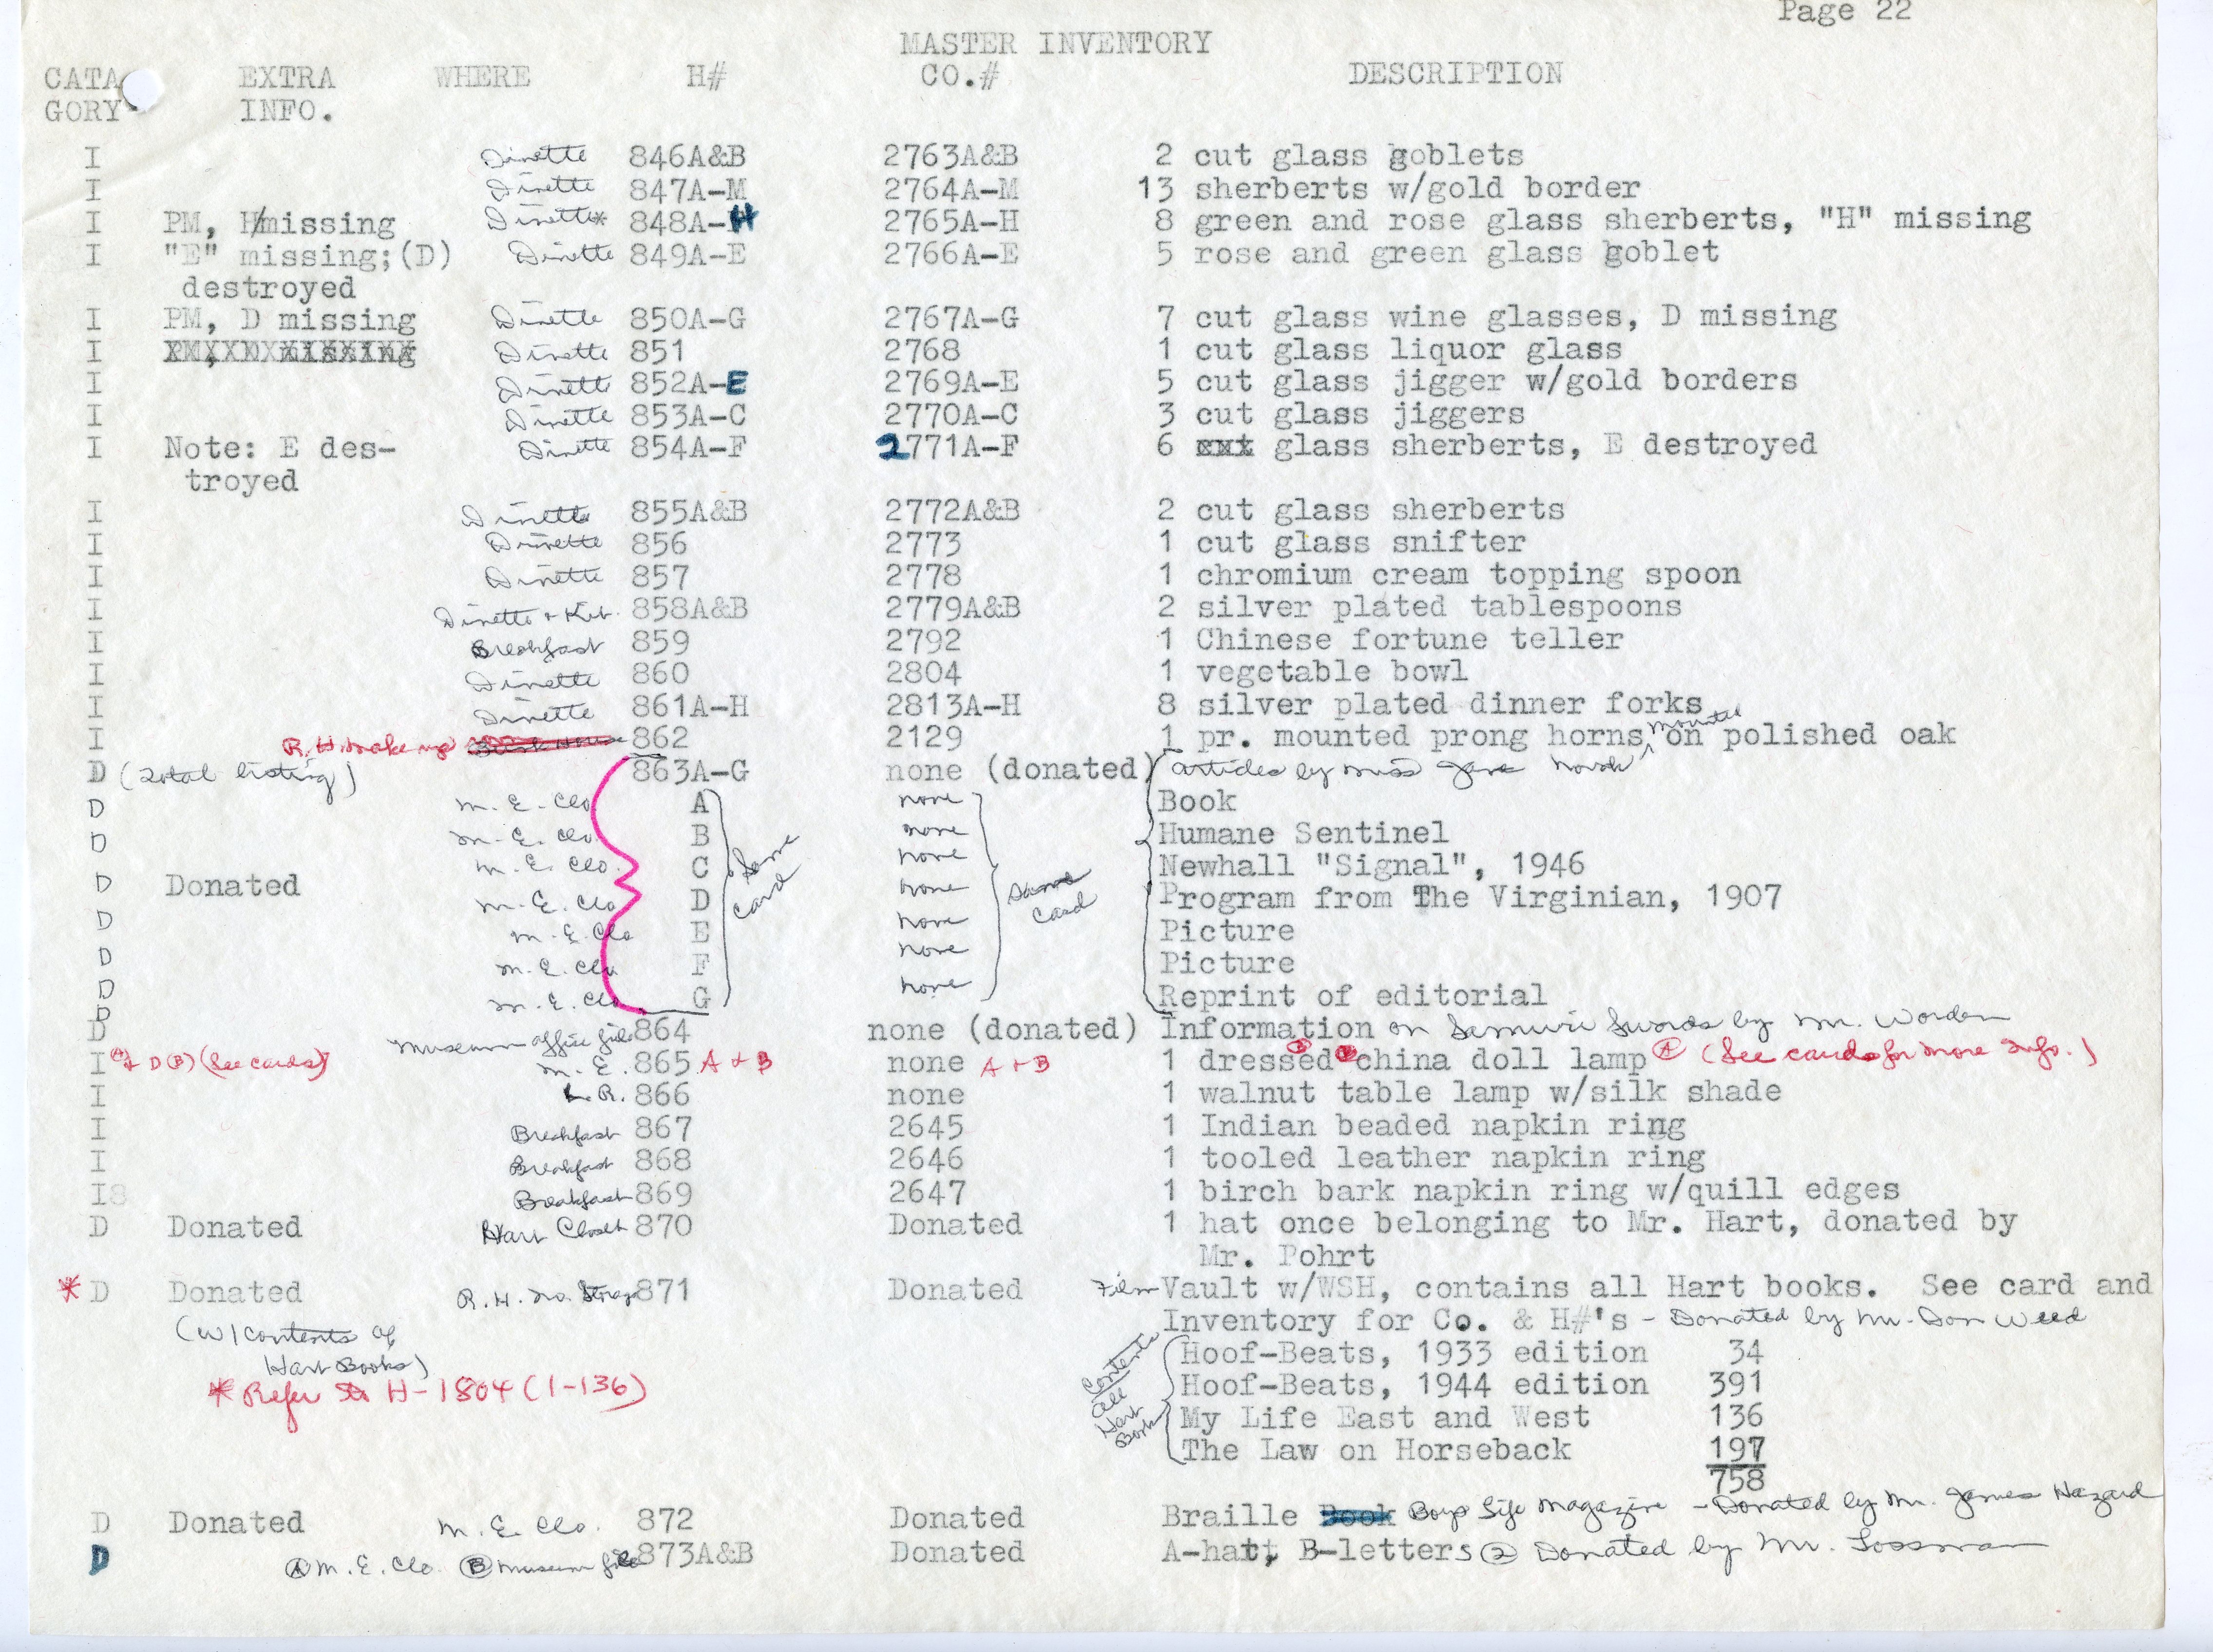 Page 22
MASTER INVENTORY
CATA EXTRA WHERE H# CO.# DESCRIPTION
GORY INFO.
I Dinette 846A&B 2763A&B 2 cut glass goblets
I Dinette 847A-M 2764A-M 13 sherberts w/gold border
I PM, H/missing Dinette* 848A-H 2765A-H 8 green and rose glass sherberts, "H" missing
I "E" missing;(D) Dinette 849A-E 2766A-E 5 rose and green glass goblet
destroyed
I PM, D missing Dinette 850A-G 2767A-G 7 cut glass wine glasses, D missing
I Dinette 851 2768 1 cut glass liquor glass
I Dinette 852A-E 2769A-E 5 cut glass jigger w/gold borders
I Dinette 853A-C 2770A-C 3 cut glass jiggers
I Note: E des- Dinette 854A-F 2771A-F 6 glass sherberts, E destroyed
troyed
I Dinette 855A&B 2772A&B 2 cut glass sherberts
I Dinette 856 2773 1 cut glass snifter
I Dinette 857 2778 1 chromium cream topping spoon
I Dinette + Kit. 858A&B 2779A&B 2 silver plated tablespoons
I Breakfast 859 2792 1 Chinese fortune teller
I Dinette 860 2804 1 vegetable bowl
I Dinette 861A-H 2813A-H 8 silver plated dinner forks
I R.H. 862 2129 1 pr. mounted prong horns, mounted on polished oak
D (total listing) 863A-G none (donated) articles by Miss Jane
D M.E. Clo. A none Book
D M.E. Clo. B none Humane Sentinel
D M.E. Clo. C Same card none Newhall "Signal", 1946
D Donated M.E. Clo. D none Same card Program from The Virginian, 1907
D M.E. Clo E none Picture
D M.E. Clo. F none Picture
D M.E. Clo. G none Reprint of editorial
D Museum office file 864 none (donated) Information on Samuri Swords by Mr. Worden
I (A) + D (B) (See cards) M.E. 865 A + B none A + B 1 dressed (B) china doll lamp (A) (See cards for more info.)
I L.R. 866 none 1 walnut table lamp w/silk shade
I Breakfast 867 2645 1 Indian beaded napkin ring
I Breakfast 868 2646 1 tooled leather napkin ring
I Breakfast 869 2647 1 birch bark napkin ring w/quill edges
D Donated Hart Closet 870 Donated 1 hat once belonging to Mr. Hart, donated by
Mr. Pohrt
* D Donated R.H. 871 Donated Film Vault w/WSH, contains all Hart books. See card and
(w/contents of Inventory for Co. & H#'s - Donated by Mr. Don Weed
Hart Books) Contents all Hart Books Hoof-Beats, 1933 edition 34
* Refer to H-1804 (1-136) Hoof-Beats, 1944 edition 391
My Life East and West 136
The Law on Horseback 197
758
D Donated M.E. Clo. 872 Donated Braille Book Boys Life Magazine - Donated by Mr. James Hazard
D (A) M.E. Clo. (B) Museum file 873A&B Donated A-hat, B-letters (2) Donated by Mr.